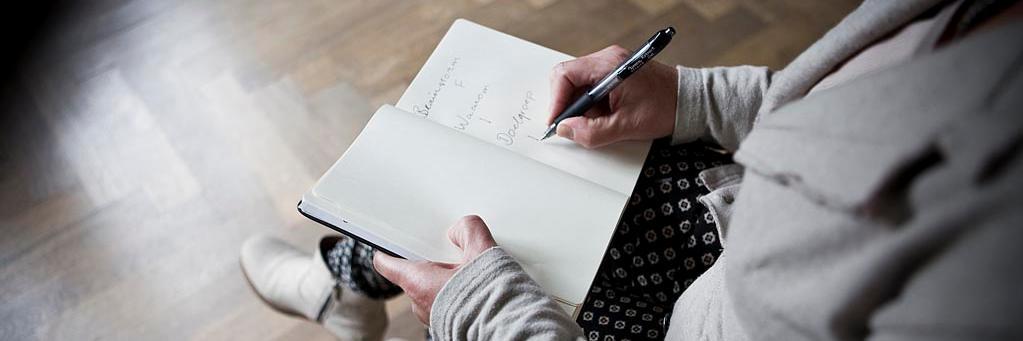 Brainstorm
F
Waarom
|
Doelgroep
|